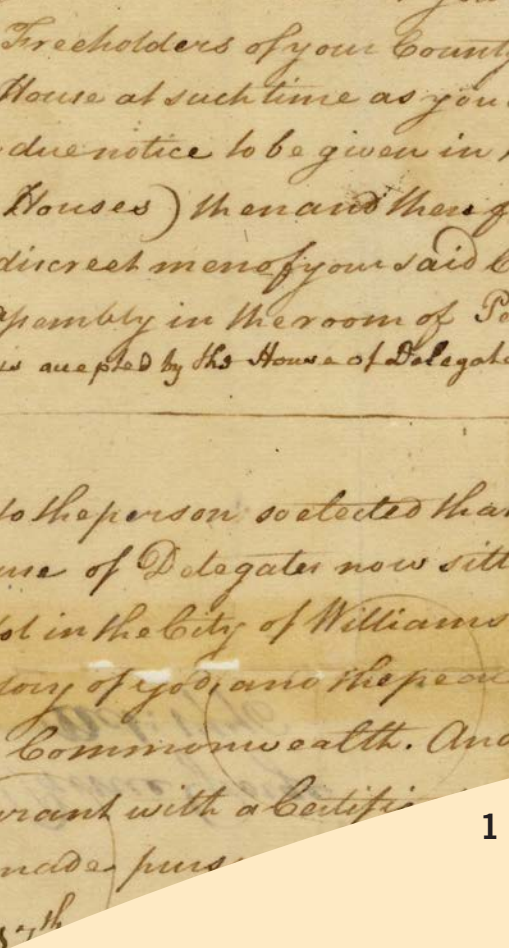 Freeholders of your County
House at such time as you
due notice to be given in
Houses) then and there
discreet men of your said
in the room of
accepted by the House of Delegate
to the person so elected that
of Delegates now sitt
in the City of Williams
of god, and the peac
Commonwealth. And
with a Certific
made purs
1
7th